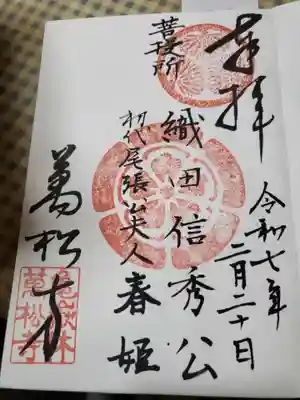 奉拝
令和七年
二月二十日
菩提所
織田信秀公
初代尾張公夫人春姫
萬松寺
龜嶽林
萬松寺